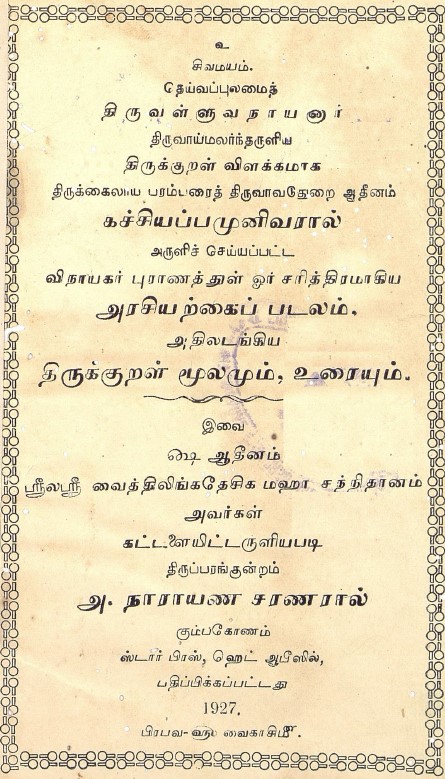 உ
சிவமயம்.
தெய்வப்புலமைத்
திருவள்ளுவநாயனார்
திருவாய்மலர்ந்தருளிய
திருக்குறள் விளக்கமாக
திருக்கைலாய பரம்பரைத் திருவாவடுதுறை ஆதீனம்
கச்சியப்பமுனிவரால்
அருளிச் செய்யப்பட்ட
விநாயகர் புராணத்துள் ஓர் சரித்திரமாகிய
அரசியற்கைப் படலம்,
அதிலடங்கிய
திருக்குறள் மூலமும், உரையும்.
இவை
௸ ஆதீனம்
ஸ்ரீலஸ்ரீ வைத்திலிங்கதேசிக மஹா சந்நிதானம்
அவர்கள்
கட்டளையிட்டருளியபடி
திருப்பரங்குன்றம்
அ. நாராயண சரணரால்
கும்பகோணம்
ஸ்டார் பிரஸ், ஹெட் ஆபீஸில்,
பதிப்பிக்கப்பட்டது
1927.
பிரபவ-௵ வைகாசி௴.